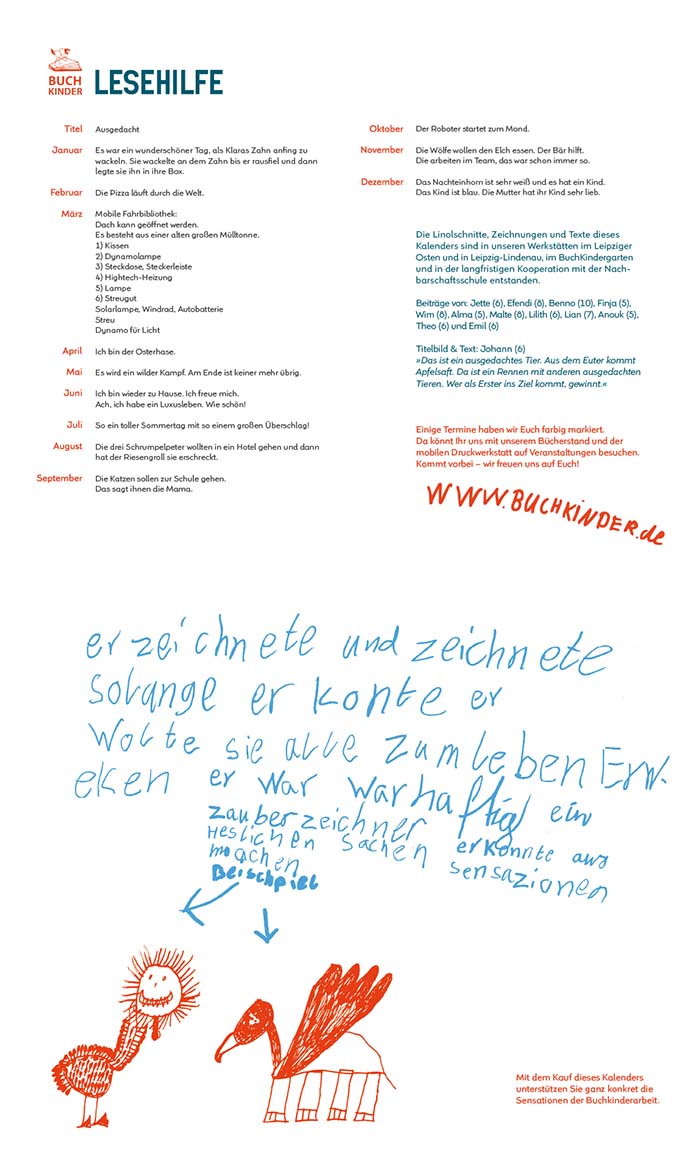 BUCH
KINDER
LESEHILFE
Titel Ausgedacht
Januar Es war ein wunderschöner Tag, als Klaras Zahn anfing zu
wackeln. Sie wackelte an dem Zahn bis er rausfiel und dann
legte sie ihn in ihre Box.
Februar Die Pizza läuft durch die Welt.
März Mobile Fahrbibliothek:
Dach kann geöffnet werden.
Es besteht aus einer alten großen Mülltonne.
1) Kissen
2) Dynamolampe
3) Steckdose, Steckerleiste
4) Hightech-Heizung
5) Lampe
6) Streugut
Solarlampe, Windrad, Autobatterie
Streu
Dynamo für Licht
April Ich bin der Osterhase.
Mai Es wird ein wilder Kampf. Am Ende ist keiner mehr übrig.
Juni Ich bin wieder zu Hause. Ich freue mich.
Ach, ich habe ein Luxusleben. Wie schön!
Juli So ein toller Sommertag mit so einem großen Überschlag!
August Die drei Schrumpelpeter wollten in ein Hotel gehen und dann
hat der Riesengroll sie erschreckt.
September Die Katzen sollen zur Schule gehen.
Das sagt ihnen die Mama.
Oktober Der Roboter startet zum Mond.
November Die Wölfe wollen den Elch essen. Der Bär hilft.
Die arbeiten im Team, das war schon immer so.
Dezember Das Nachteinhorn ist sehr weiß und es hat ein Kind.
Das Kind ist blau. Die Mutter hat ihr Kind sehr lieb.
Die Linolschnitte, Zeichnungen und Texte dieses
Kalenders sind in unseren Werkstätten im Leipziger
Osten und in Leipzig-Lindenau, im BuchKindergarten
und in der langfristigen Kooperation mit der Nach-
barschaftsschule entstanden.
Beiträge von: Jette (6), Efendi (8), Benno (10), Finja (5),
Wim (8), Alma (5), Malte (8), Lilith (6), Lian (7), Anouk (5),
Theo (6) und Emil (6)
Titelbild & Text: Johann (6)
»Das ist ein ausgedachtes Tier. Aus dem Euter kommt
Apfelsaft. Da ist ein Rennen mit anderen ausgedachten
Tieren. Wer als Erster ins Ziel kommt, gewinnt.«
Einige Termine haben wir Euch farbig markiert.
Da könnt Ihr uns mit unserem Bücherstand und der
mobilen Druckwerkstatt auf Veranstaltungen besuchen.
Kommt vorbei – wir freuen uns auf Euch!
WWW.BUCHKiNDER.de
er zeichnete und zeichnete
solange er konte er
wolte sie alle zum leben Erw.
eken er war warhaftig ein
zauberzeichner er konnte aus
Heslichen sachen sensazionen
machen
Beischpiel
Mit dem Kauf dieses Kalenders
unterstützen Sie ganz konkret die
Sensationen der Buchkinderarbeit.